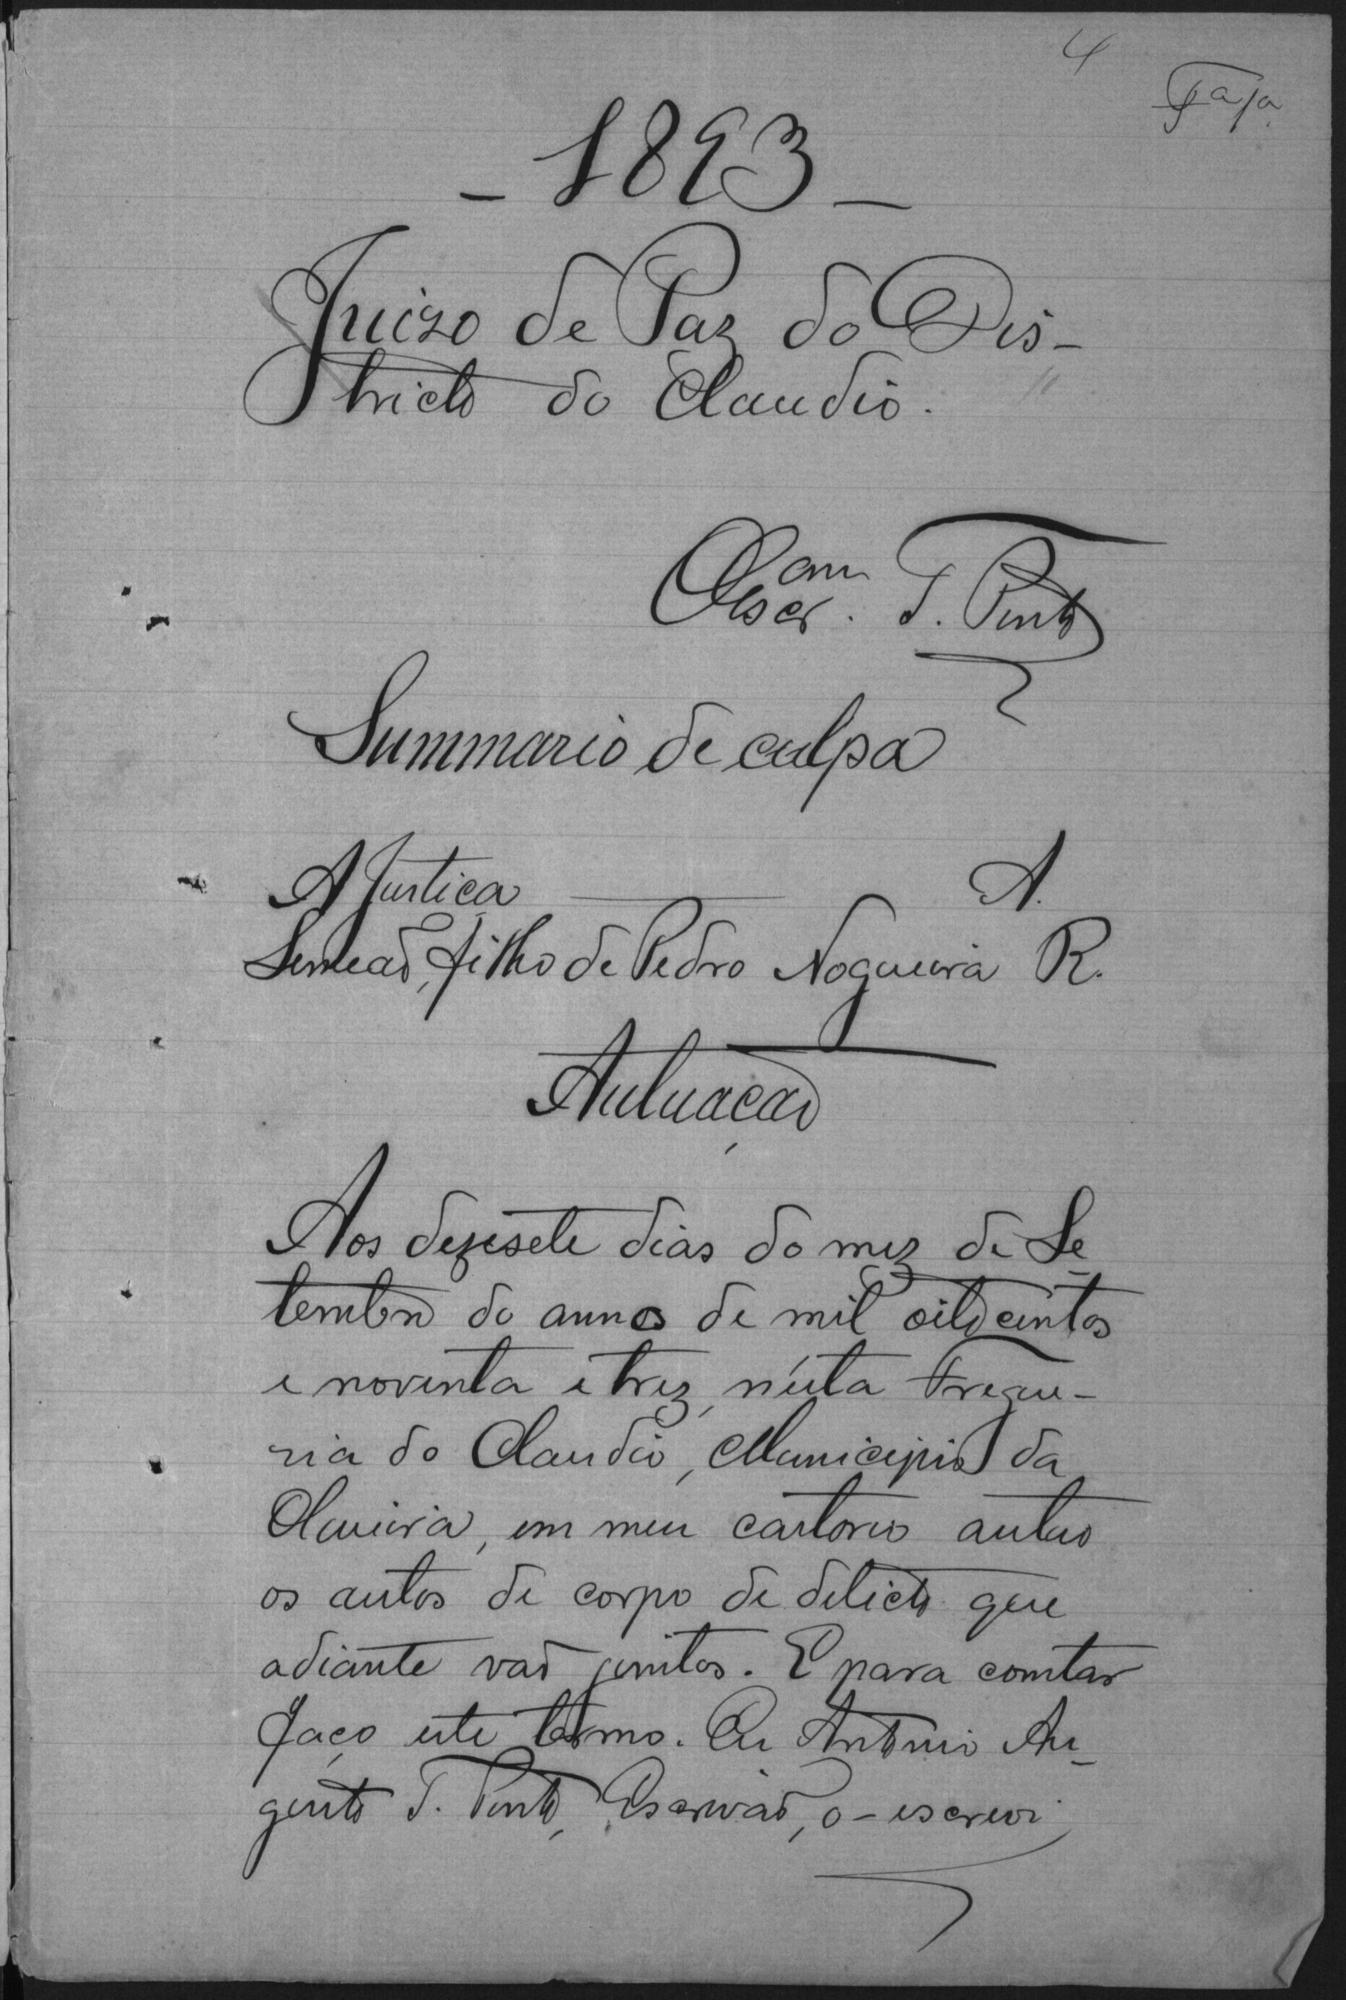 4
- 1893 -
Juizo de Paz do Dis-
tricto do Claudio.
Escr.am T. Pinto
Summario de culpa
A Justiça A.
Simeaõ, filho de Pedro Nogueira R.
Autuaçaõ
Aos dezesete dias do mez de Se-
tembro do anno de mil oitocentos
e noventa e trez, n'esta Fregue-
sia do Claudio, Municipio da
Oliveira, em meu cartorio autuo
os autos de corpo de delicto que
adiante vaõ juntos. E para constar
faço este termo. Eu Antonio Au-
gusto T. Pinto, Escrivaõ, o-escrevi